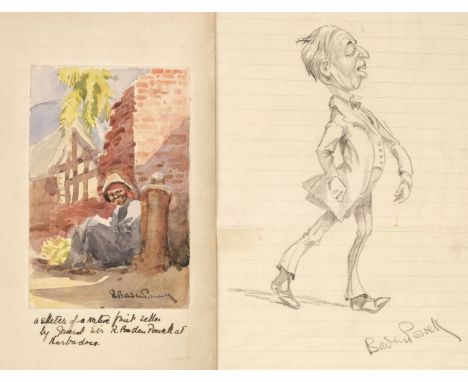 R Baden Powell
a sketch of a native fruit seller
by General Sir R. Baden Powell at
Barbados.
Baden Powell